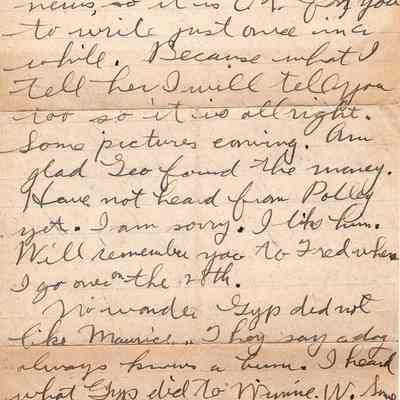 news, so it is O.K. for you
to write just once in a
while. Because what I
tell her I will tell you
too so it is all right.
Some pictures coming. Am
glad Geo found the money.
Have not heard from Polley
yet. I am sorry. I like him.
Will remember you to Fred when
I go over on the 28th.
No wonder Gyp did not
like Maurice. They say a dog
always knows a bum. I heard
what Gyp did to Winnie. W. Some